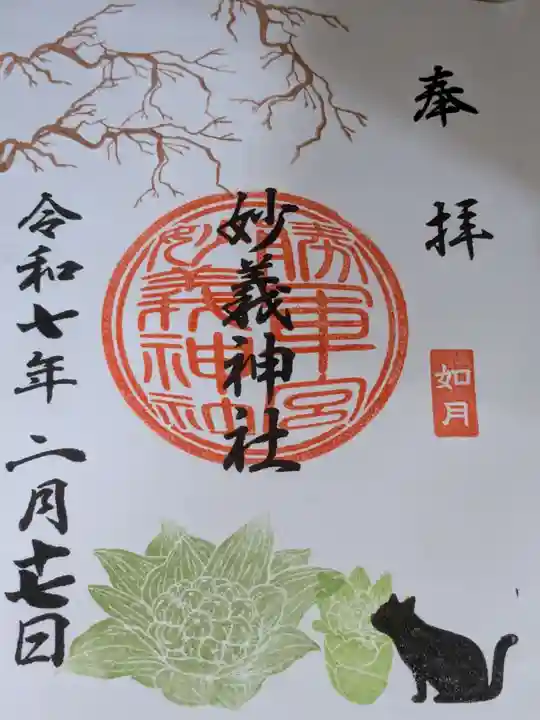 奉拝
如月
妙義神社
勝軍宮
妙義神社
令和七年二月十七日